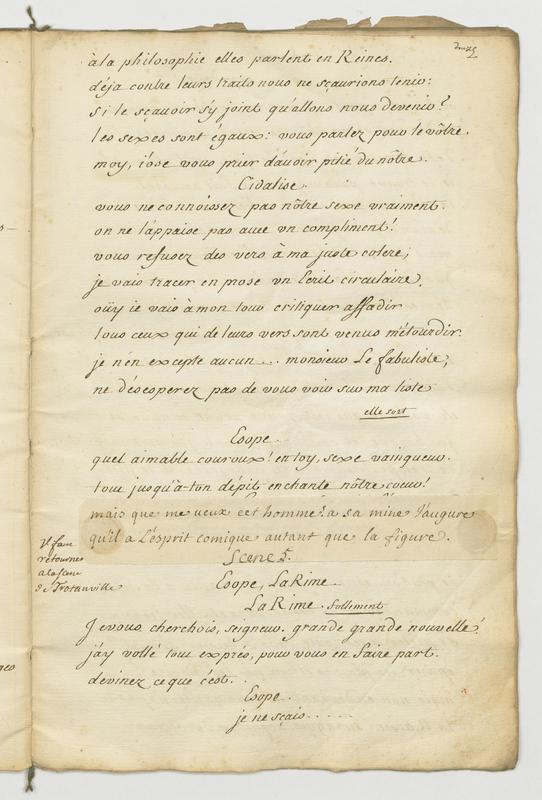 à la philosophie elles parlent en Reines.
déja contre leurs traits nous ne sçaurions tenir:
si le sçavoir s'y joint qu'allons nous devenir?
les sexes sont égaux: vous parlez pour le vôtre
moy, i'ose vous prier d'avoir pitié du nôtre.
Cidalise.
vous ne connoissez pas nôtre sexe vraiment.
on ne l'appaise pas avec vn compliment!
vous refusez des vers à ma juste colere;
je vais tracer en prose vn Ecrit circulaire,
oüy ie vais à mon tour critiquer affadir
tous ceux qui de leurs vers sont venus m'étourdir.
je n'en excepte aucun... monsieur Le fabuliste;
ne désesperez pas de vous voir sur ma liste
elle sort
Esope.
quel aimable couroux! en toy, sexe vainqueur.
tout jusqu'à-ton dépit enchante nôtre coeur!
mais que me veux cet homme? a sa mine J'augure
qu'il a L'esprit comique autant que la figure.
yl faut
retourner
a la scene
de Trotanville
Scene 5.
Esope, La Rime.
La Rime. follement
Je vous cherchois, seigneur. grande grande nouvelle!
j'ay vollé tout exprés, pour vous en faire part.
devinez ce que c'est..
Esope.
je ne sçais.....